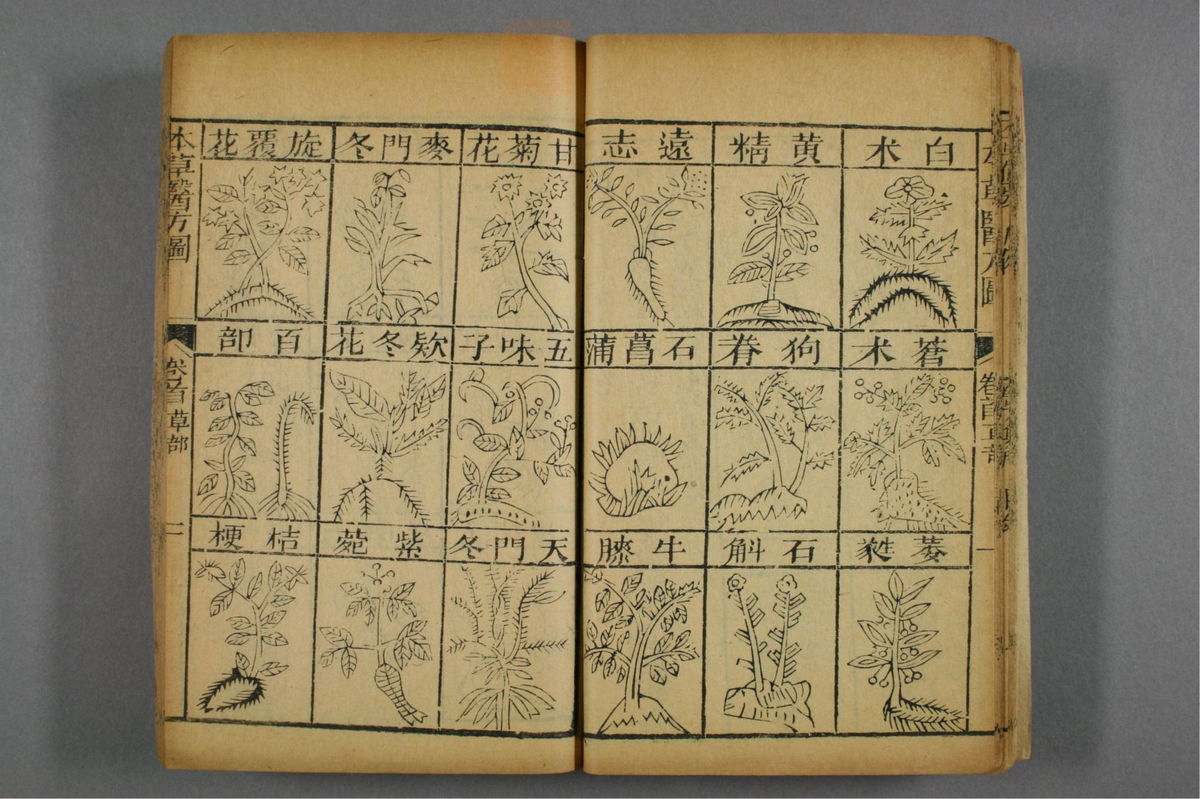 本草醫方圖
白朮
黃精
遠志
蒼朮
狗脊
石菖蒲
萎蕤
石斛
牛膝
卷首草部
一
甘菊花
麥門冬
旋覆花
五味子
欵冬花
百部
天門冬
紫菀
桔梗
本草醫方圖
卷首草部
二